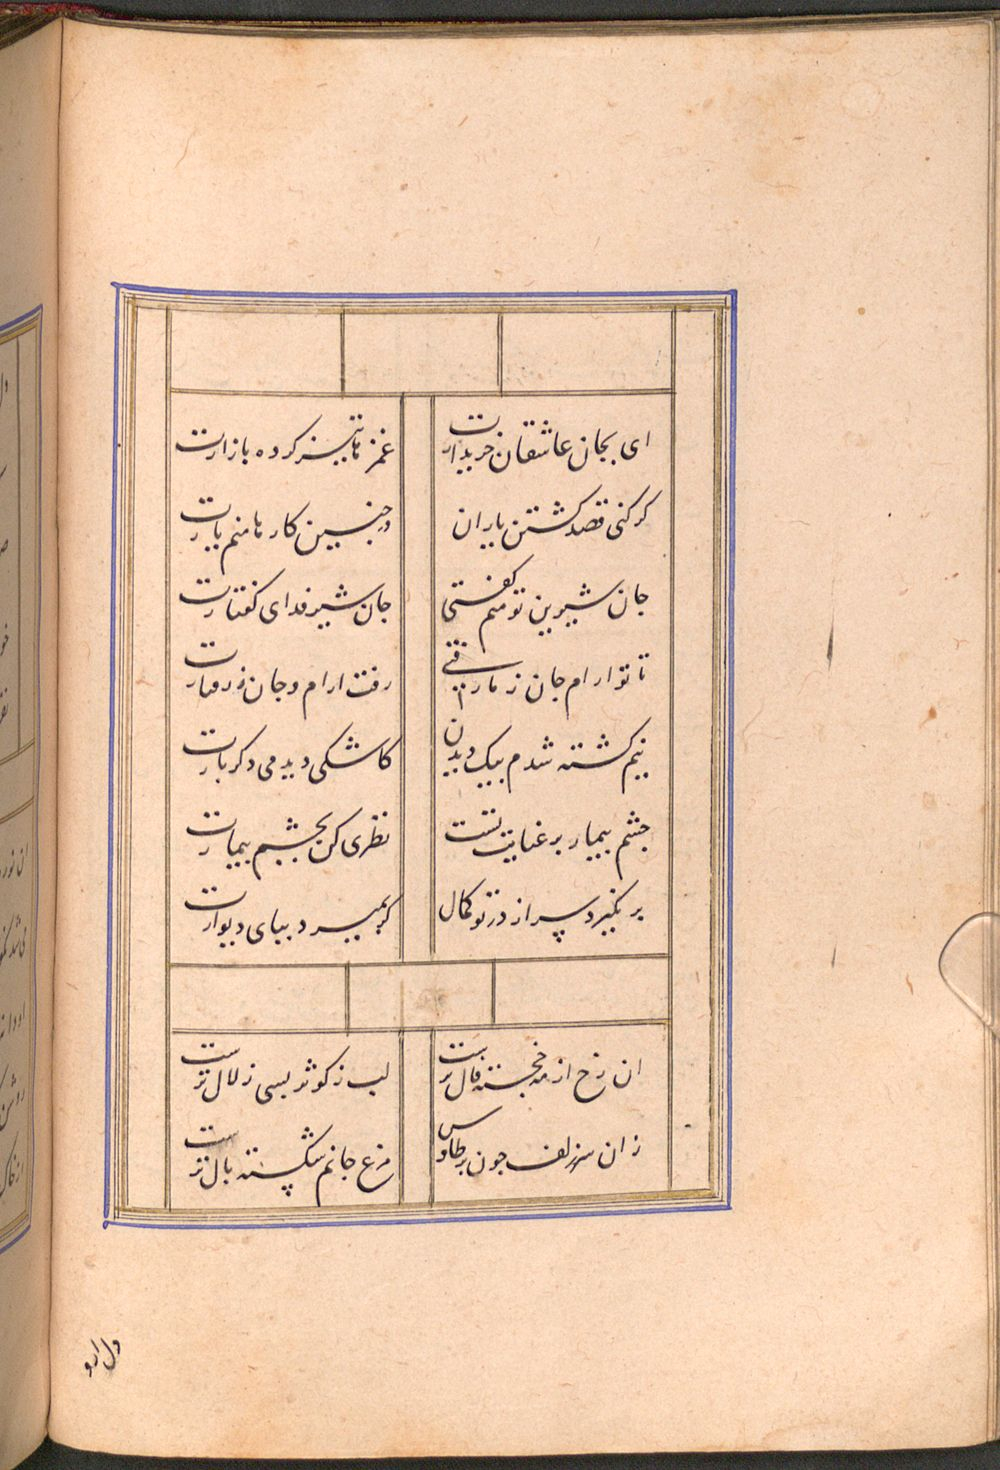 ای بجان عاشقان خریدارت
غمزها تیز کرده بازارت
کر کنی قصد کشتن یاران
در جنین کارها منم یارت
جان شیرین تو منم کفتی
جان شیر فدای کفتارت
تا تو ارام جان ز ما رفتی
رفت ارام و جان ز رفتارت
نیم کشته شدم بیک دیدن
کاشکی دیدمی دکر بارت
جشم بیمار بر عنایت تست
نظری کن بجشم بیمارت
بر نکیرد سر از در تو کمال
کر بمیرد بپای دیوارت
ان رخ از مه خجسته فال ترست
لب ز کوثر بسی زلال ترست
زان سر زلف جون پر طاوس
مرغ جانم شکسته بال ترست
دل ازو